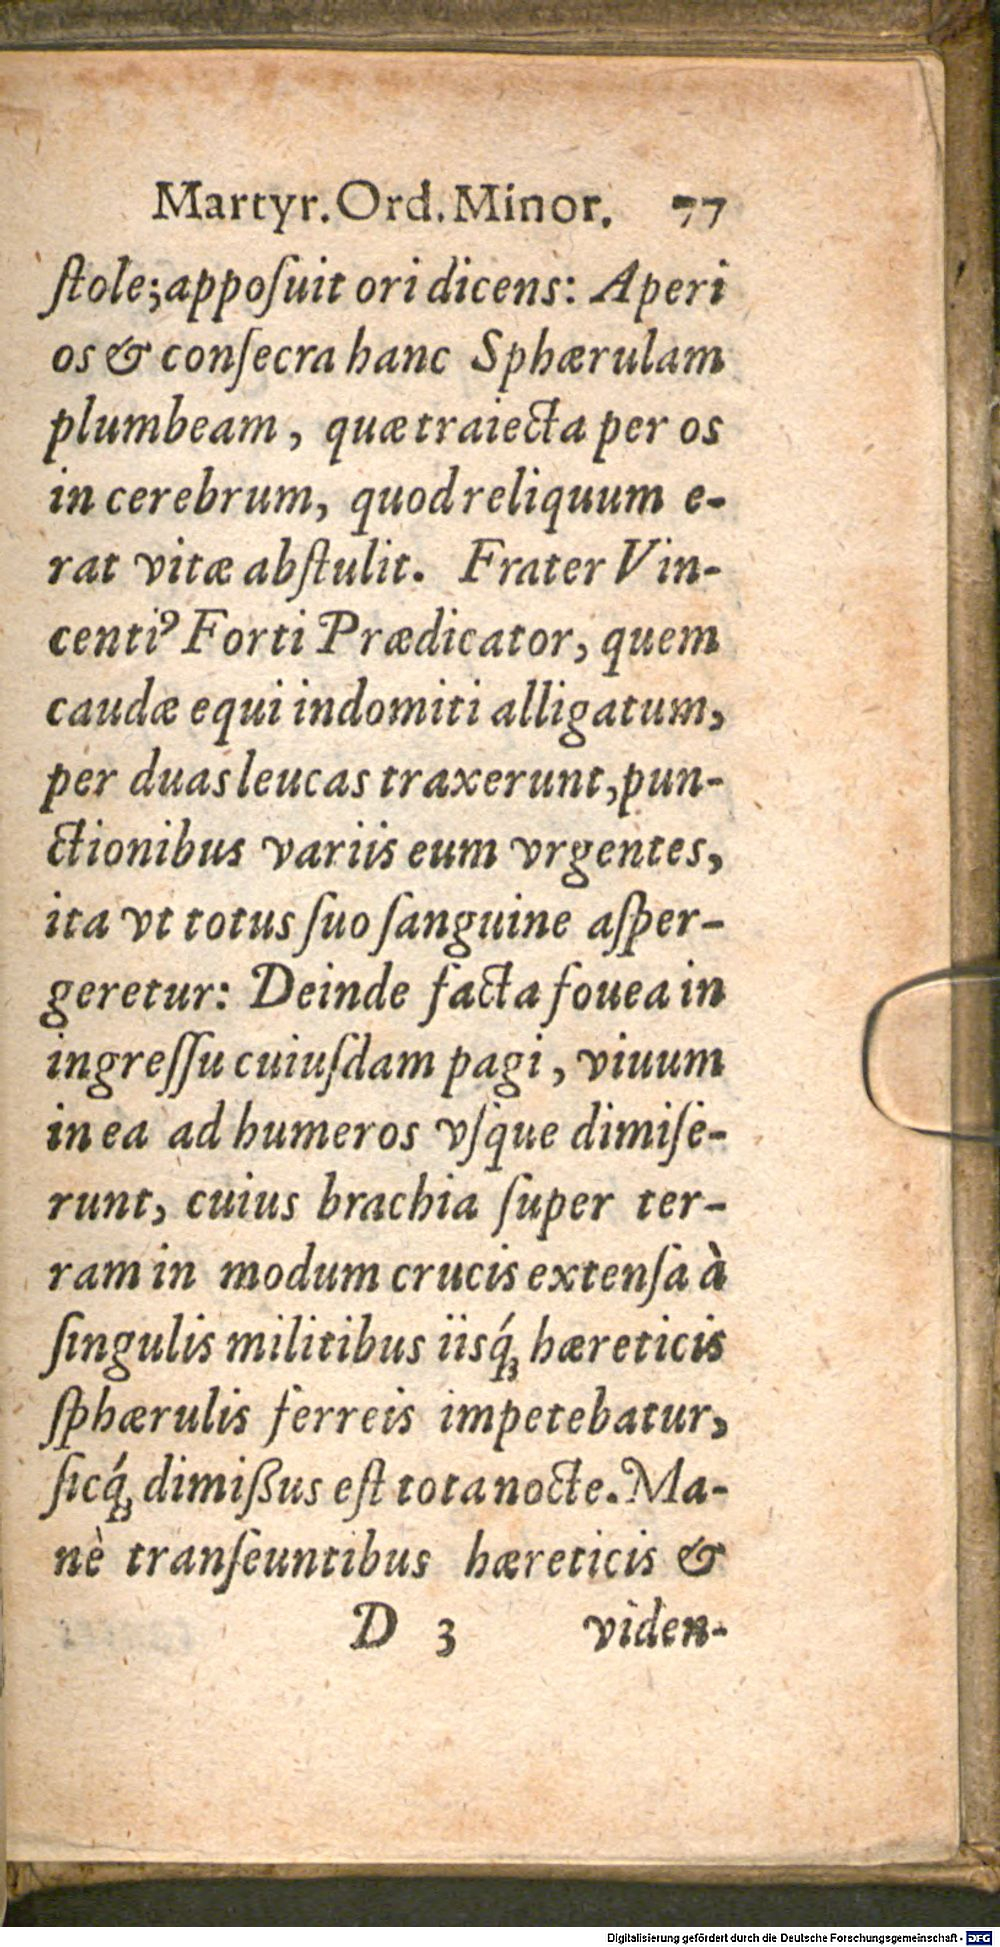 Martyr. Ord. Minor. 77
ſtole; appoſuit ori dicens: Aperi
os & conſecra hanc Sphærulam
plumbeam, quæ traiecta per os
in cerebrum, quod reliquum e-
rat vitæ abſtulit. Frater Vin-
centiꝰ Forti Prædicator, quem
caudæ equi indomiti alligatum,
per duas leucas traxerunt, pun-
ctionibus variis eum vrgentes,
ita vt totus ſuo ſanguine aſper-
geretur: Deinde facta fouea in
ingreſſu cuiuſdam pagi, viuum
in ea ad humeros vſque dimiſe-
runt, cuius brachia ſuper ter-
ram in modum crucis extenſa à
ſingulis militibus iisq́ꝫ hæreticis
ſphærulis ferreis impetebatur,
ſicq́ꝫ dimißus eſt tota nocte. Ma-
nè tranſeuntibus hæreticis &
D 3 viden-
Digitalisierung gefördert durch die Deutsche Forschungsgemeinschaft - DFG